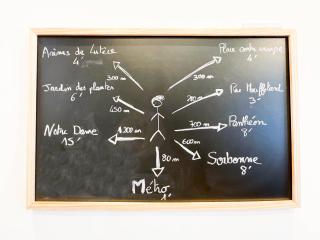 Arènes de Lutèce
4'
300 m
Place contrescarpe
4'
300 m
Jardin des plantes
6'
450 m
Rue Mouffetard
3'
200 m
Notre Dame
15'
1200 m
Panthéon
8'
700 m
Sorbonne
8'
600 m
Métro
1'
80 m